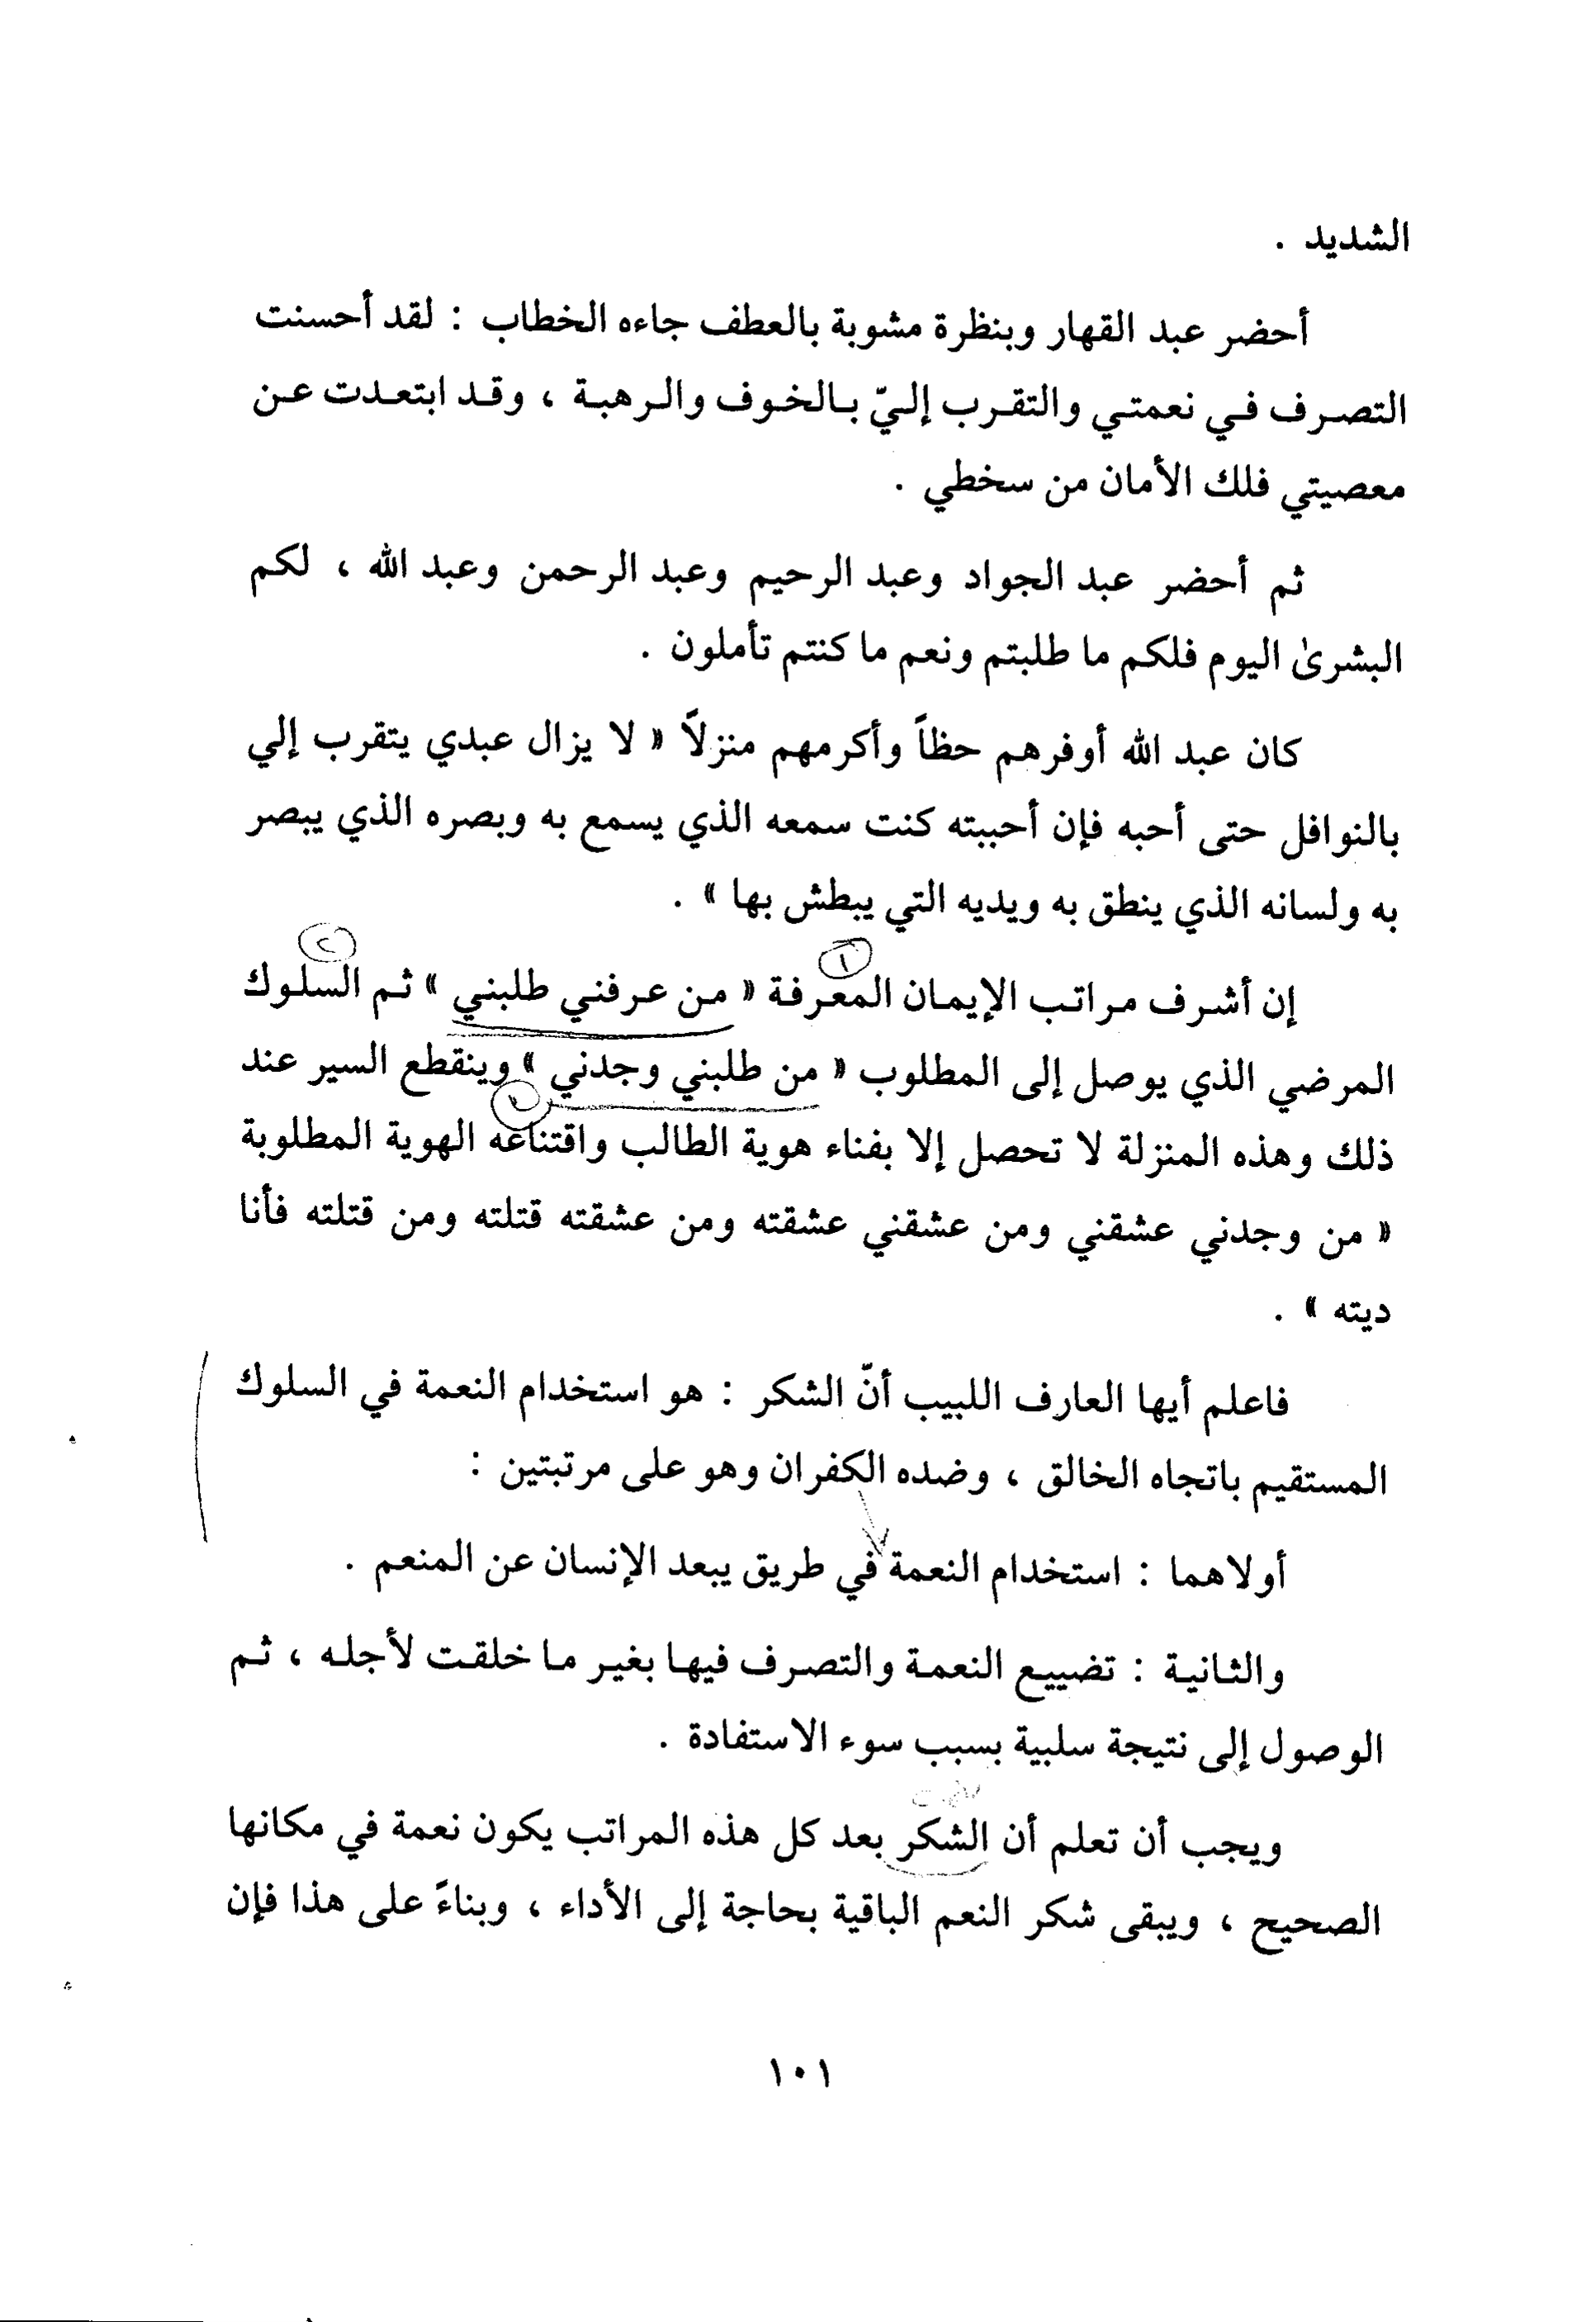 الشديد .
أحضر عبد القهار وبنظرة مشوبة بالعطف جاءه الخطاب : لقد أحسنت
التصرف في نعمتي والتقرب إليّ بالخوف والرهبة ، وقد ابتعدت عن
معصيتي فلك الأمان من سخطي .
ثم أحضر عبد الجواد وعبد الرحيم وعبد الرحمن وعبد الله ، لكم
البشرىٰ اليوم فلكم ما طلبتم ونعم ما كنتم تأملون .
كان عبد الله أوفرهم حظاً وأكرمهم منزلاً « لا يزال عبدي يتقرب إلي
بالنوافل حتى أحبه فإن أحببته كنت سمعه الذي يسمع به وبصره الذي يبصر
به ولسانه الذي ينطق به ويديه التي يبطش بها » .
١
إن أشرف مراتب الإيمان المعرفة « من عرفني طلبني » ثم السلوك
المرضي الذي يوصل إلى المطلوب « من طلبني وجدني » وينقطع السير عند
ذلك وهذه المنزلة لا تحصل إلا بفناء هوية الطالب واقتناعه الهوية المطلوبة
« من وجدني عشقني ومن عشقني عشقته ومن عشقته قتلته ومن قتلته فأنا
ديته » .
فاعلم أيها العارف اللبيب أنّ الشكر : هو استخدام النعمة في السلوك
المستقيم باتجاه الخالق ، وضده الكفران وهو على مرتبتين :
أولاهما : استخدام النعمة في طريق يبعد الإنسان عن المنعم .
والثانية : تضييع النعمة والتصرف فيها بغير ما خلقت لأجله ، ثم
الوصول إلى نتيجة سلبية بسبب سوء الاستفادة .
ويجب أن تعلم أن الشكر بعد كل هذه المراتب يكون نعمة في مكانها
الصحيح ، ويبقى شكر النعم الباقية بحاجة إلى الأداء ، وبناءً على هذا فإن
١٠١